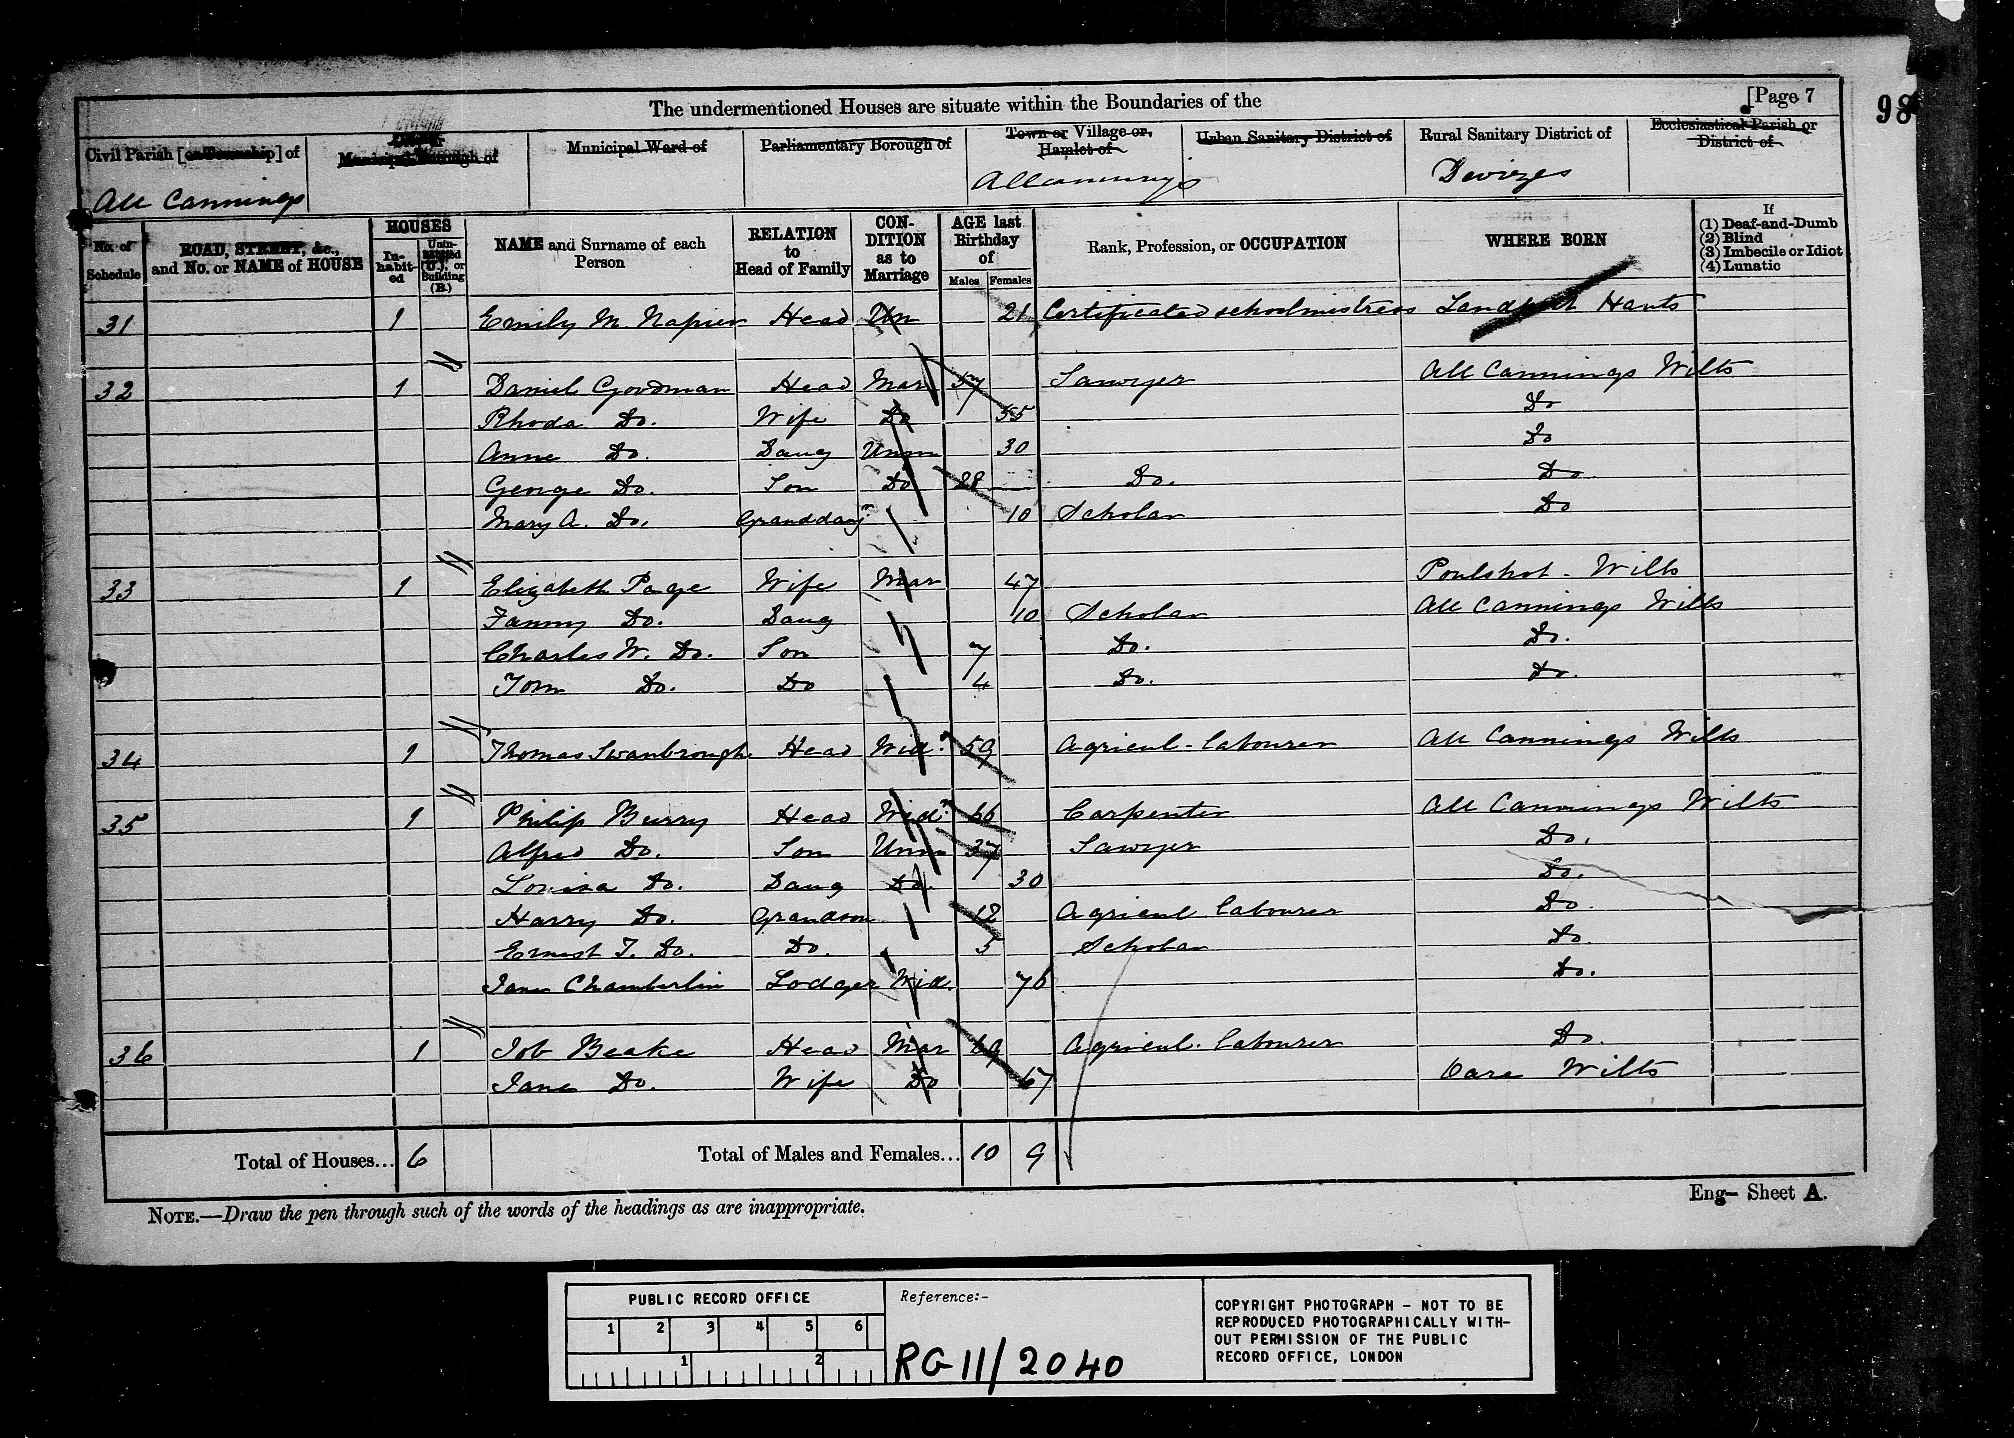 The undermentioned Houses are situate within the Boundaries of the
[Page 7
98
Civil Parish [or Township] of
Municipal Borough of
Municipal Ward of
Parliamentary Borough of
Town or Village or Hamlet of
Urban Sanitary District of
Rural Sanitary District of
Ecclesiastical Parish or District of
All Cannings
Allcannings
Devizes
No. of Schedule
ROAD, STREET, &c., and No. or NAME of HOUSE
HOUSES
In-habit-ed
Unin-habited (U.), or Building (B.)
NAME and Surname of each Person
RELATION to Head of Family
CON-DITION as to Marriage
AGE last Birthday of
Males
Females
Rank, Profession, or OCCUPATION
WHERE BORN
If
(1) Deaf-and-Dumb
(2) Blind
(3) Imbecile or Idiot
(4) Lunatic
31 1 Emily M. Napier Head Un 21 Certificated schoolmistress Landport Hants
32 1 Daniel Goodman Head Mar 57 Sawyer All Cannings Wilts
Rhoda Do. Wife Do 55 Do
Anne Do. Daug Unm 30 Do
George Do. Son Do 28 Do. Do
Mary A. Do. Granddaugr 10 Scholar Do
33 1 Elizabeth Page Wife Mar 47 Poulshot - Wilts
Fanny Do. Daug 10 Scholar All Cannings Wilts
Charles W. Do. Son 7 Do. Do.
Tom Do. Do 4 Do. Do.
34 1 Thomas Swanbrough Head Widr 59 Agricul - labourer All Cannings Wilts
35 1 Philip Burry Head Widr 66 Carpenter All Cannings Wilts
Alfred Do. Son Unm 37 Sawyer Do.
Louisa Do. Daug Do. 30 Do.
Harry Do. Grandson 12 Agricul labourer Do
Ernest T. Do. Do. 5 Scholar Do.
Jane Chamberlin Lodger Wid. 76 Do.
36 1 Job Beake Head Mar 69 Agricul. labourer Do.
Jane Do. Wife Do 67 Oare Wilts
Total of Houses... 6 Total of Males and Females... 10 9
NOTE.—Draw the pen through such of the words of the headings as are inappropriate.
Eng— Sheet A.
PUBLIC RECORD OFFICE
1 2 3 4 5 6
1 2
Reference:-
RG 11/2040
COPYRIGHT PHOTOGRAPH - NOT TO BE
REPRODUCED PHOTOGRAPHICALLY WITH-
OUT PERMISSION OF THE PUBLIC
RECORD OFFICE, LONDON